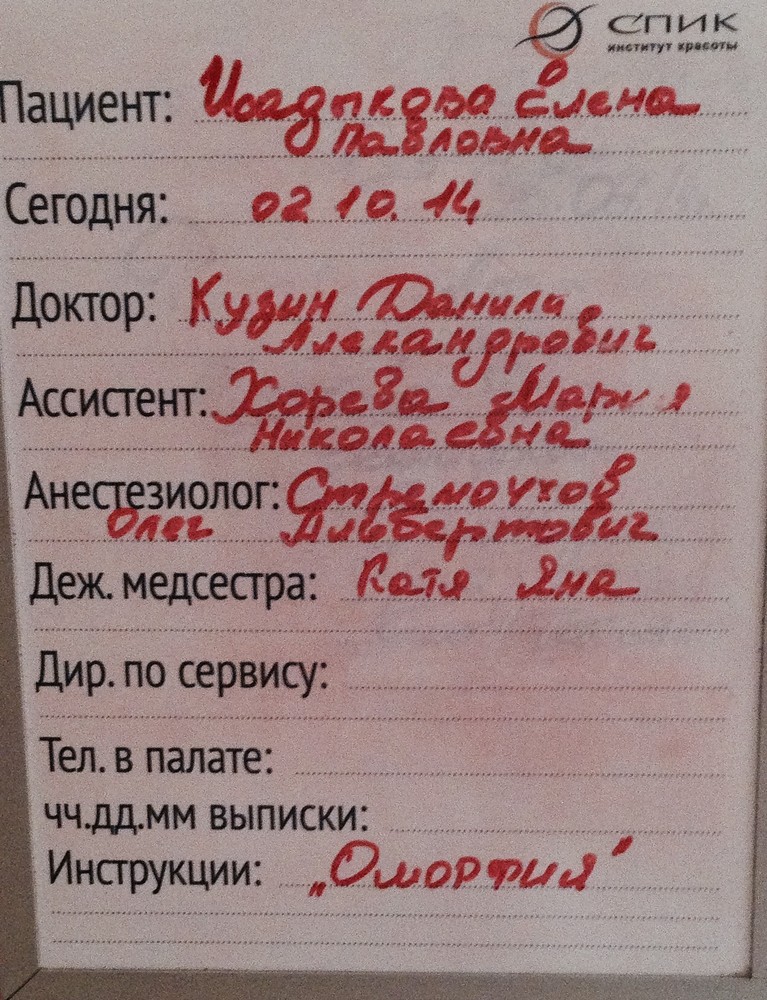 СПИК
институт красоты
Пациент: Исадыкова Елена
Павловна
Сегодня: 02 10. 14
Доктор: Кузин Данила
Алекандрович
Ассистент: Хорева Мария
Николаевна
Анестезиолог: Стремоухов
Олег Альбертович
Деж. медсестра: Катя Яна
Дир. по сервису:
Тел. в палате:
чч.дд.мм выписки:
Инструкции: „Оморфия"